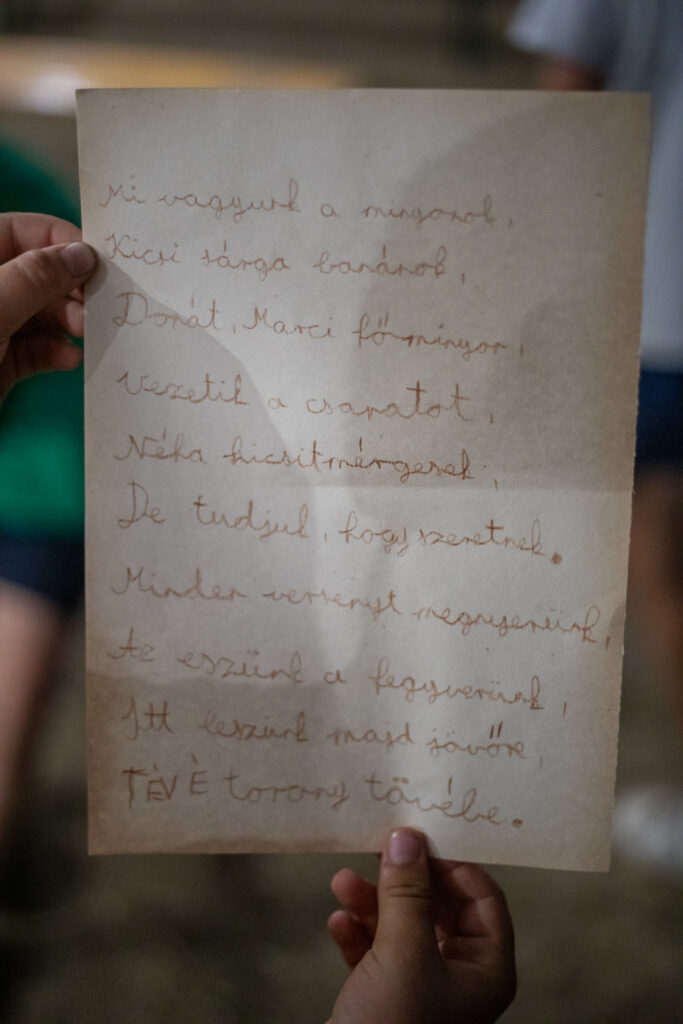 Mi vagyunk a minyonok,
Kicsi sárga banánok,
Donát, Marci főminyon,
Vezetik a csapatot,
Néha kicsit mérgesek,
De tudjuk, hogy szeretnek.
Minden versenyt megnyerünk,
Az eszünk a fegyverünk,
Itt leszünk majd jövőre,
TÉVÉ torony tövébe.